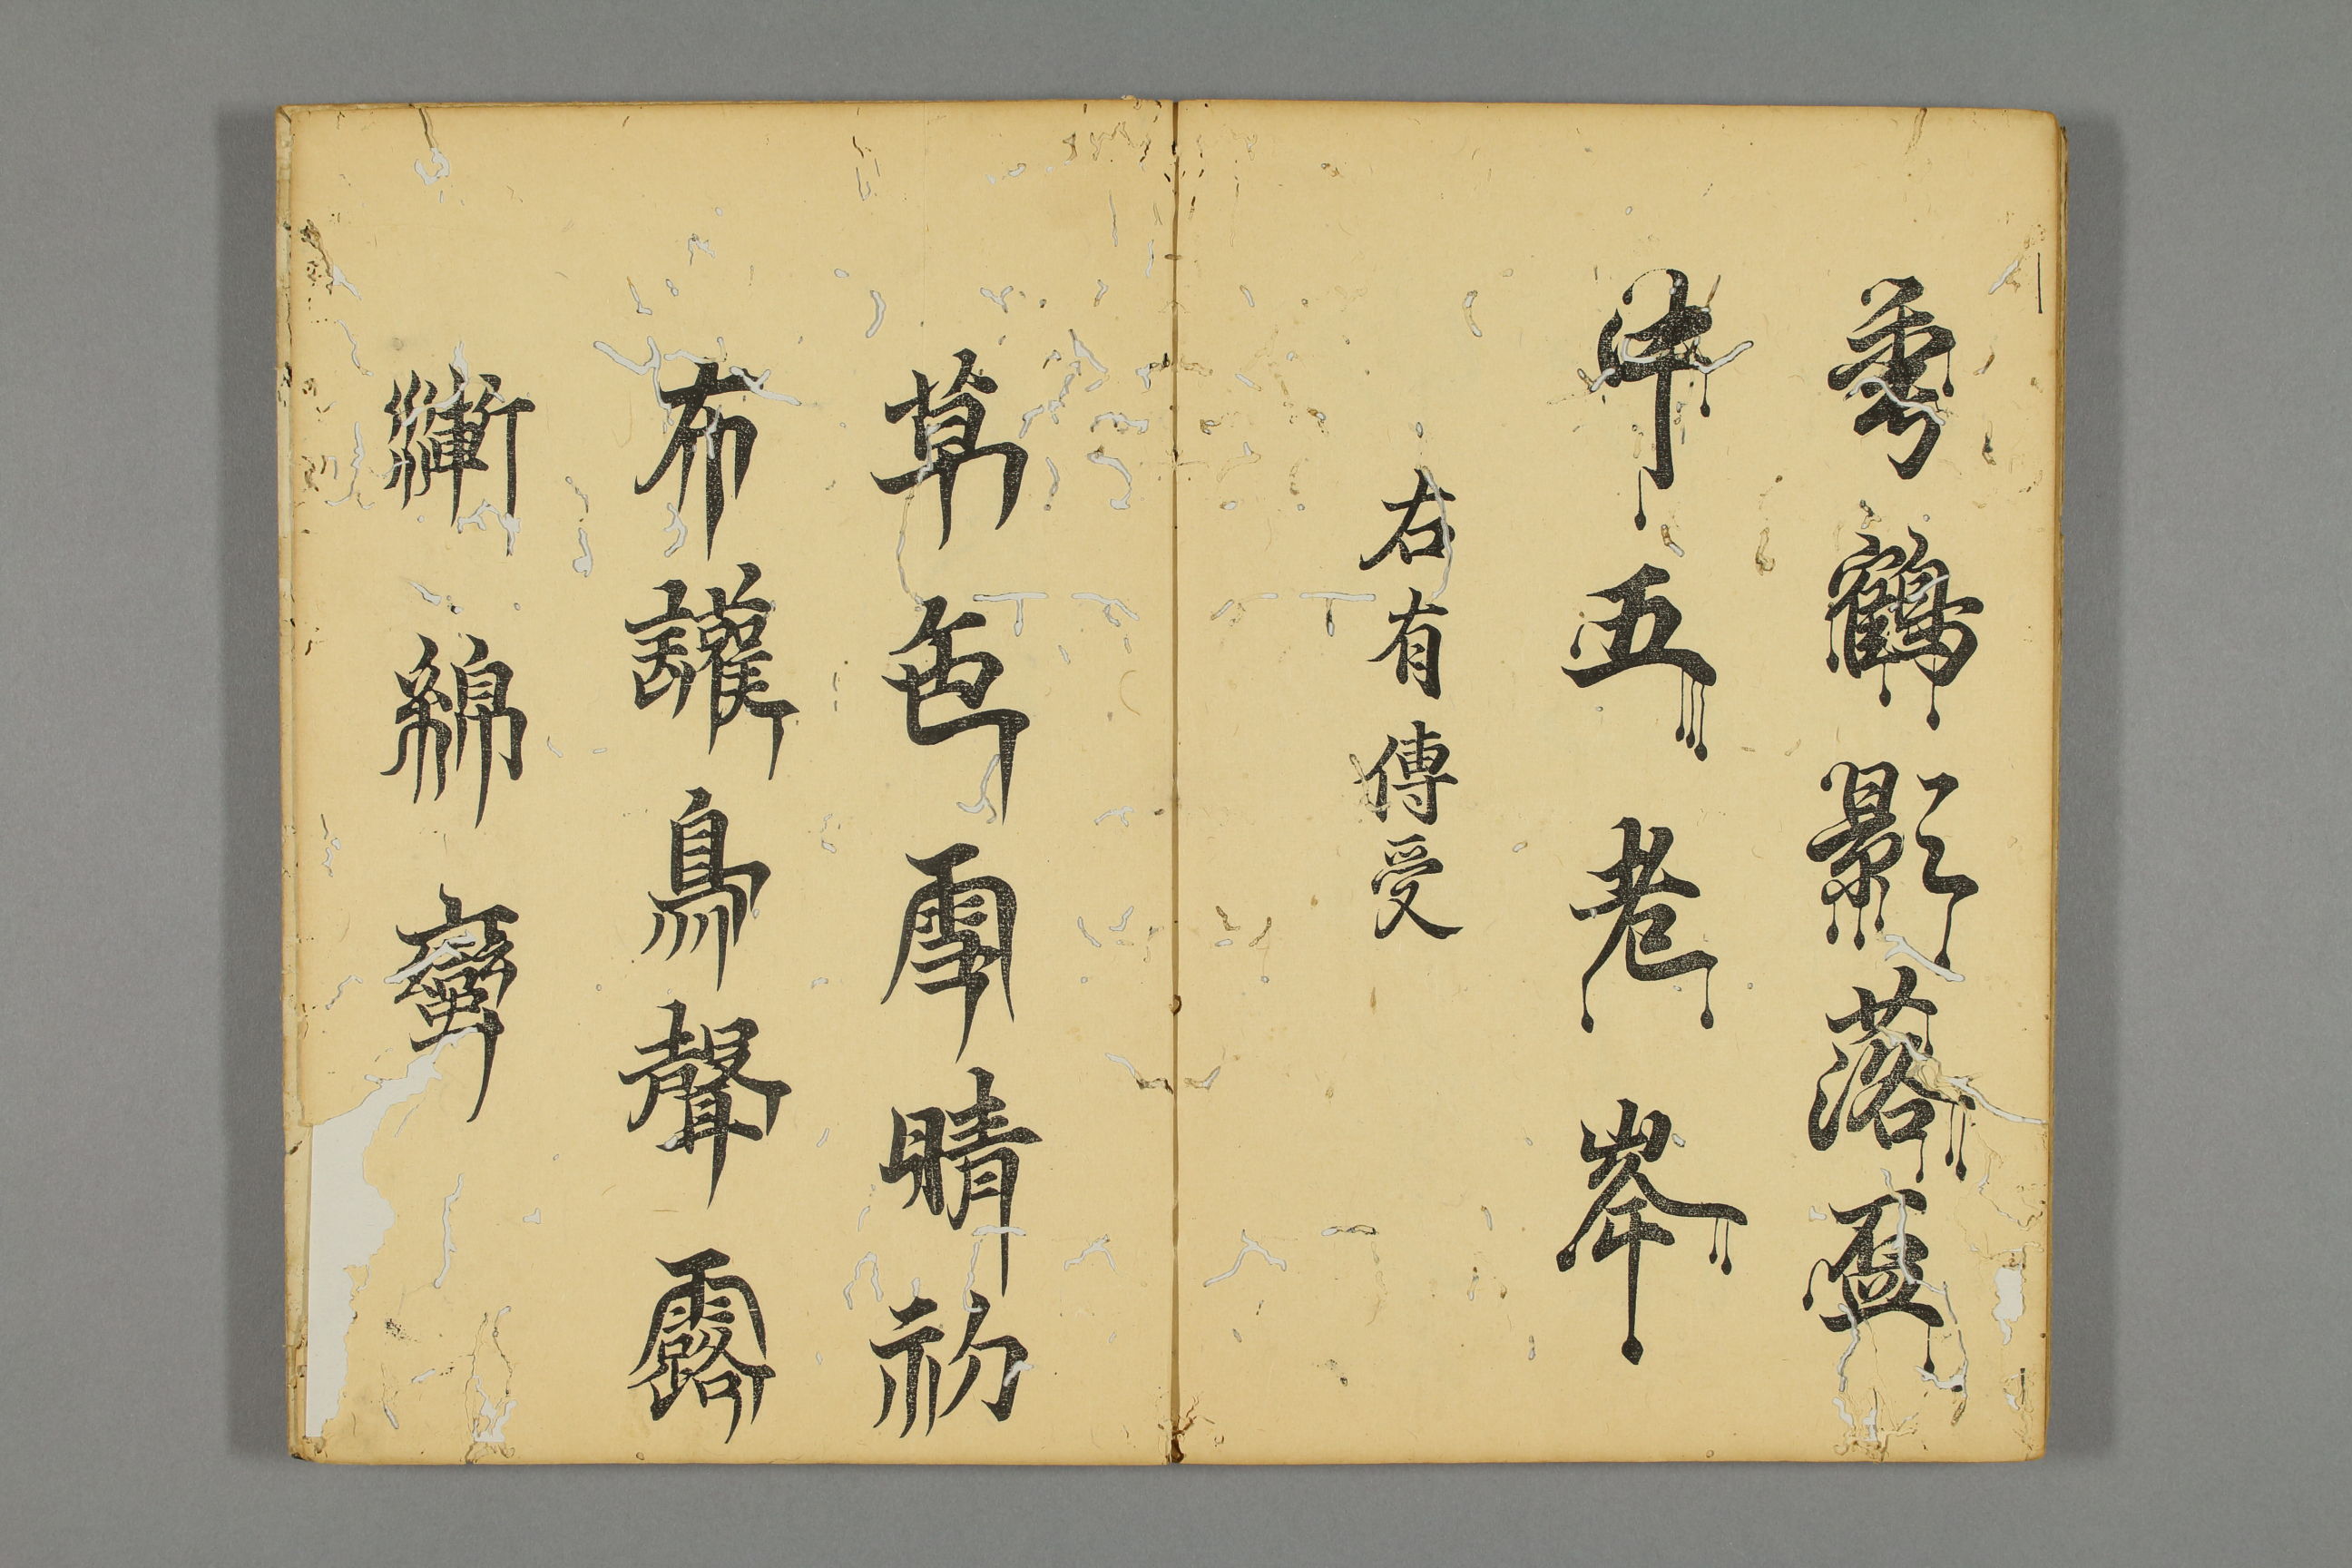 年鶴影落盃
中五老峯
右有傳受
草色雪晴初
布護鳥聲露
漸綿蠻